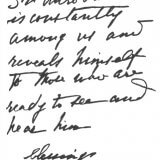 is constantly
among us and
reveals himself
to those who are
ready to see and
hear him
Blessings